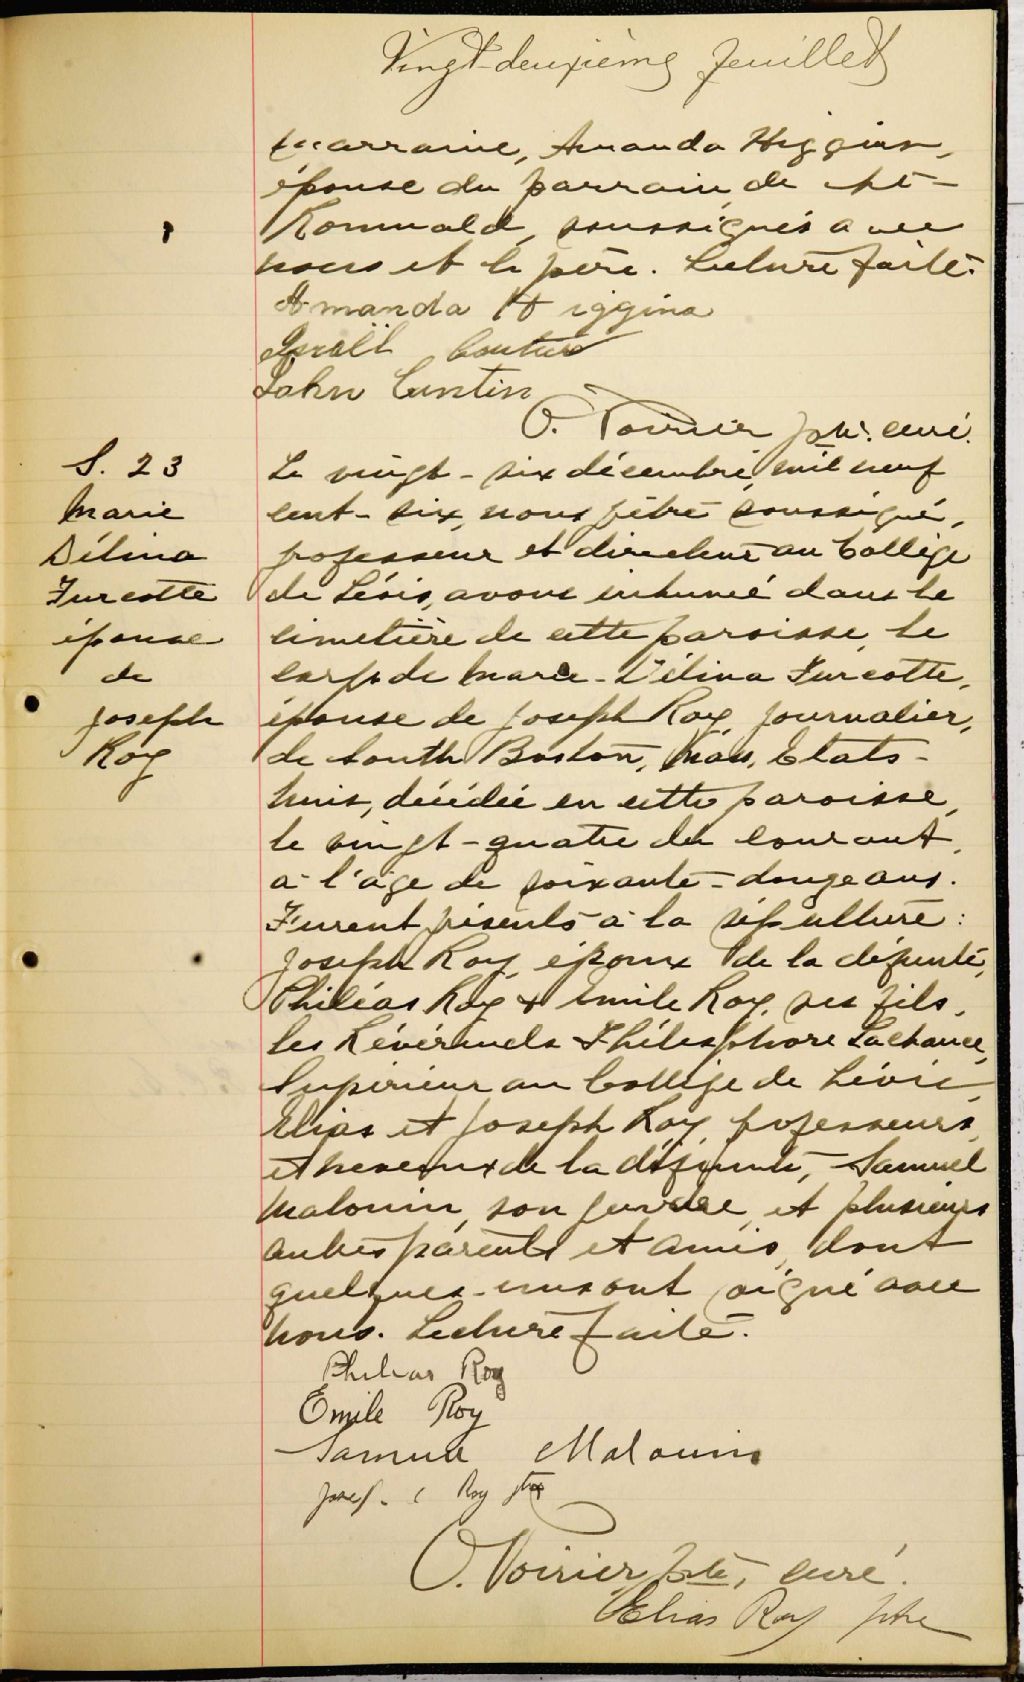 Vingt-deuxième feuillet
marraine, Amanda Higgins,
épouse du parrain, de St-
Romuald, soussignés avec
nous et le père. Lecture faite.
Amanda Higgins
Israël Couture
John Cantin
O. Poirier ptre. curé.
S. 23
Marie
Délina
Turcotte
épouse
de
Joseph
Roy
Le vingt-six décembre, mil neuf
cent-six, nous prêtre soussigné,
professeur et directeur au Collège
de Lévis, avons inhumé dans le
cimetière de cette paroisse, le
corps de Marie-Délina Turcotte,
épouse de Joseph Roy, journalier,
de South Boston, Mass, Etats-
Unis, décédée en cette paroisse,
le vingt-quatre du courant,
à l'âge de soixante-douze ans.
Furent présents à la sépulture:
Joseph Roy, époux de la défunte,
Philéas Roy & Emile Roy, ses fils,
les Révérends Thélesphore Lachance,
Supérieur au Collège de Lévis,
Elias et Joseph Roy, professeurs,
et neveux de la défunte, Samuel
Malouin, son gendre, et plusieurs
autres parents et amis, dont
quelques-uns ont signé avec
nous. Lecture faite.
Phileas Roy
Emile Roy
Samuel Malouin
Jos. Roy ptre
O. Poirier ptre, curé.
Elias Roy ptre